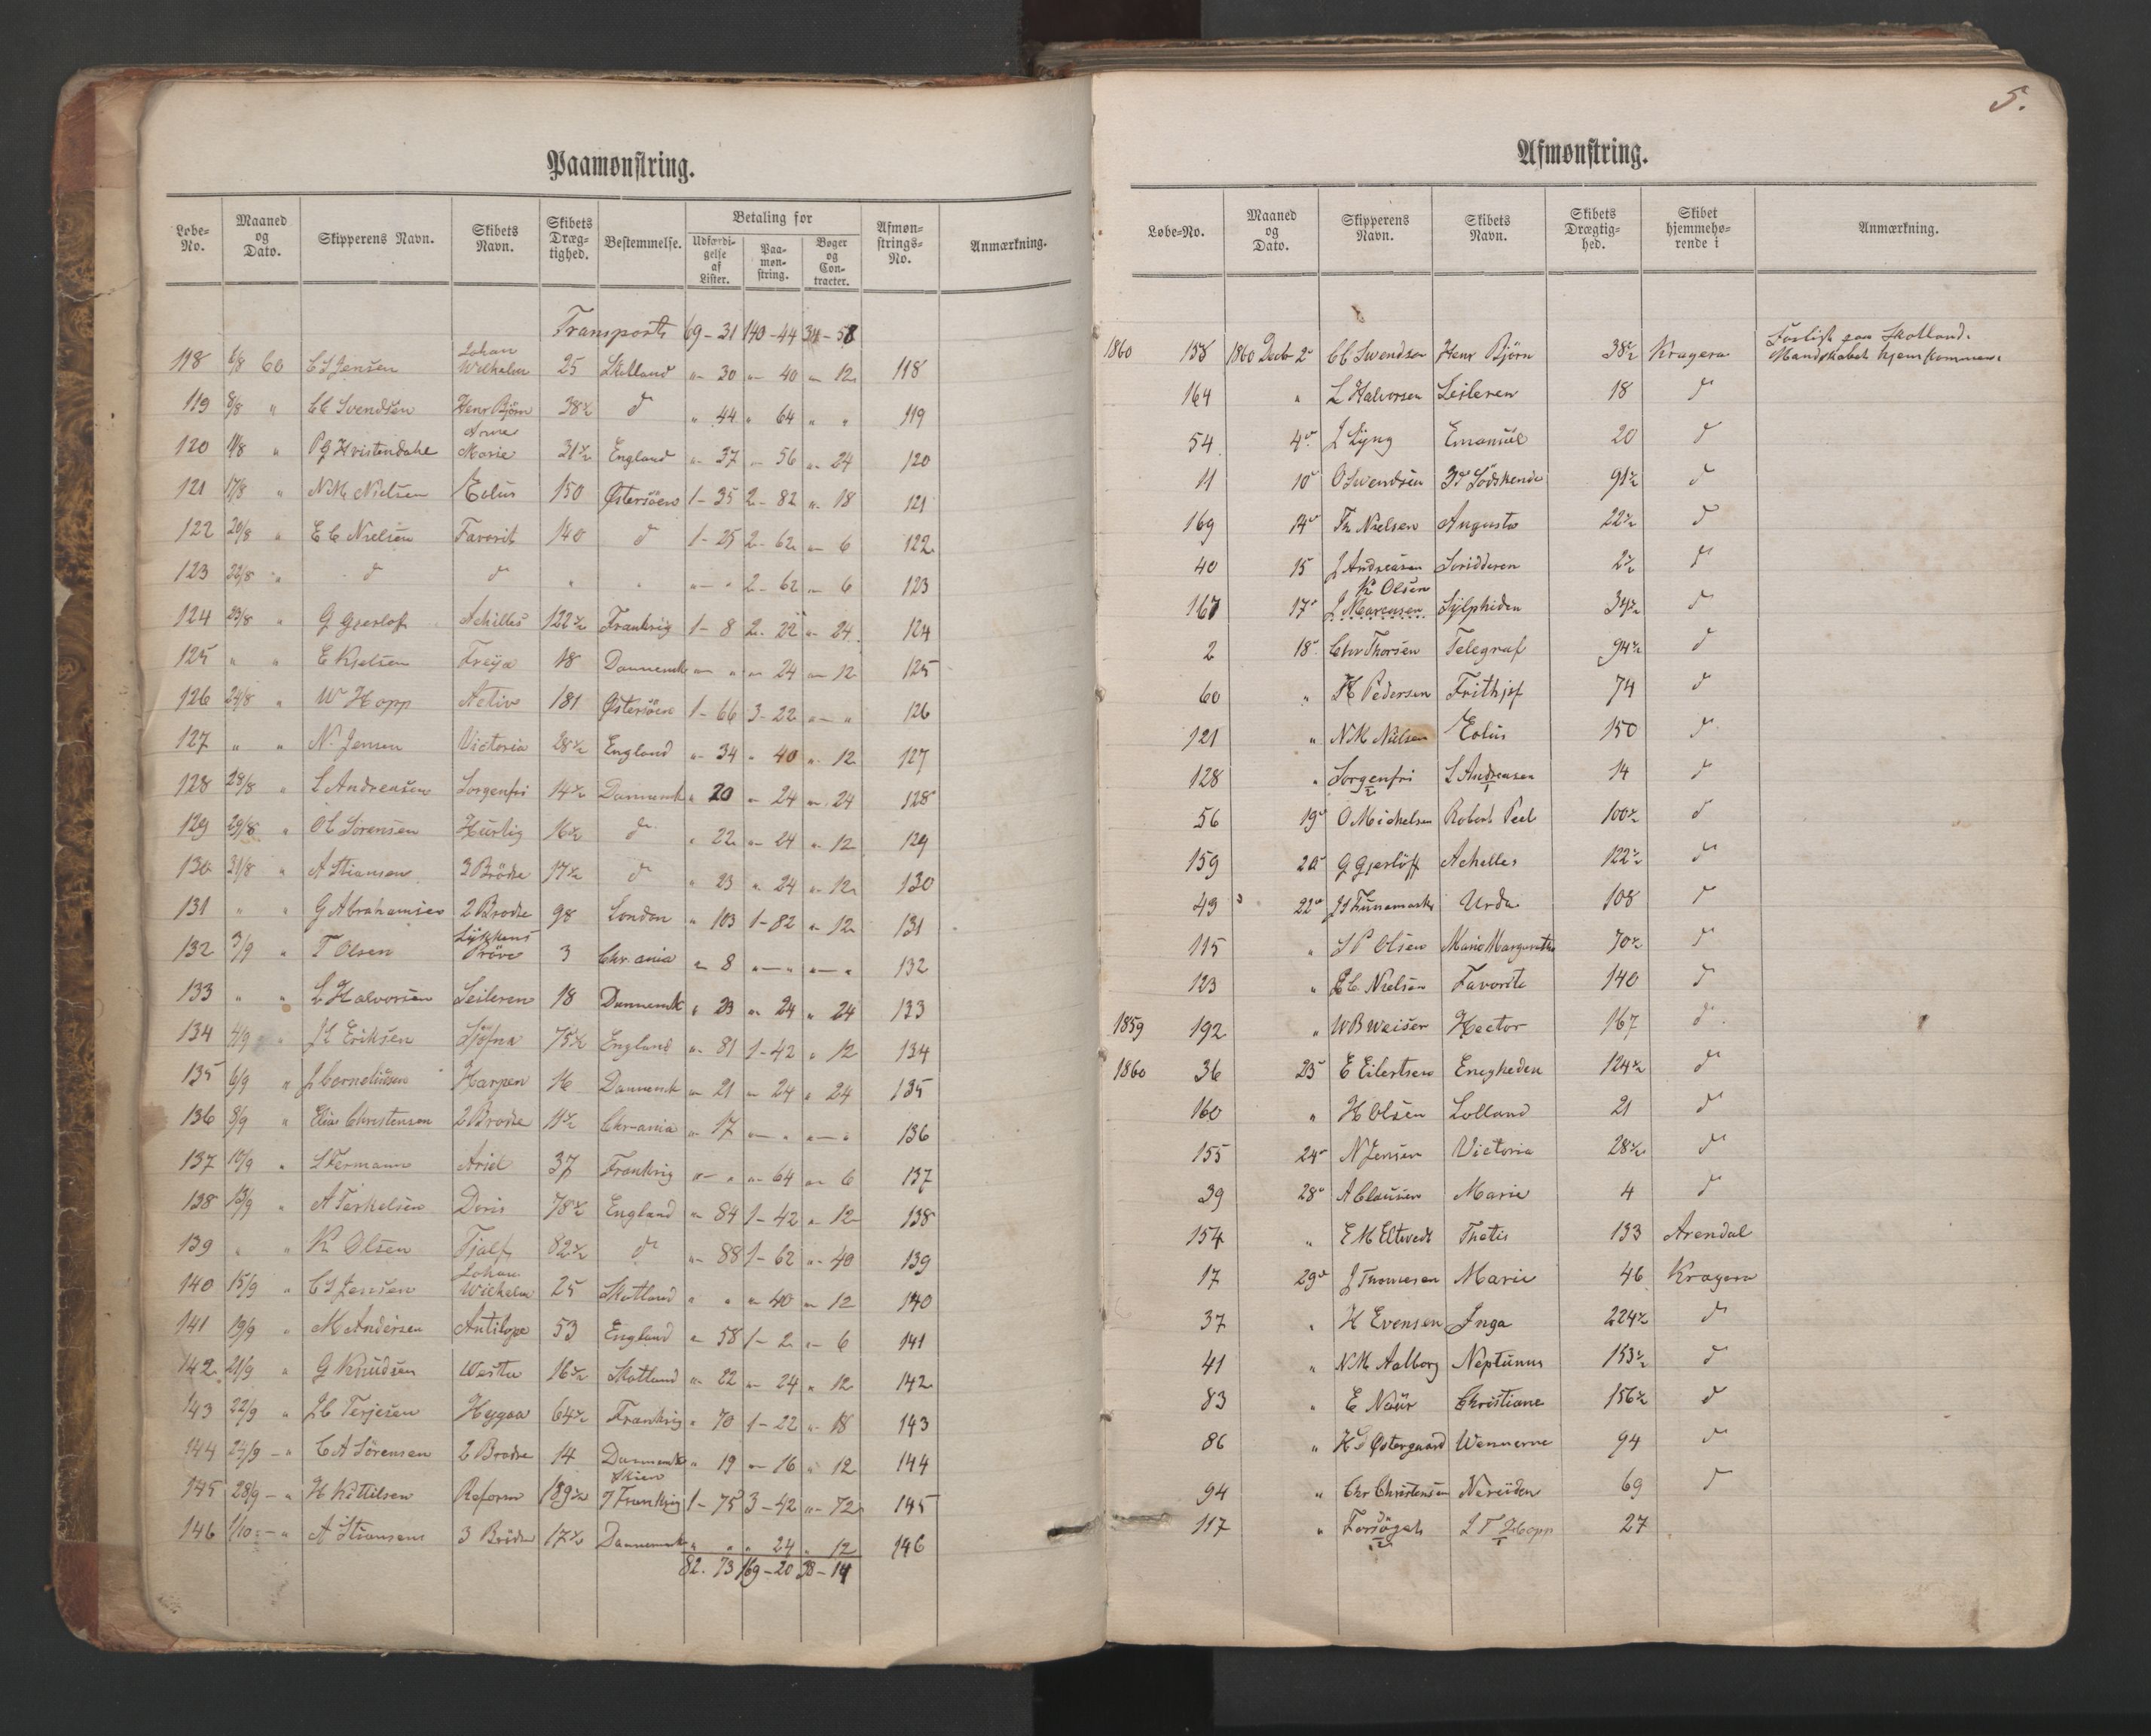 Paamønstring.
Løbe-No. | Maaned og Dato. | Skipperens Navn. | Skibets Navn. | Skibets Dræg-tighed. | Bestemmelse. | Betaling for | Udfærdi-gelse af Lister. | Paa-møn-string. | Bøger og Con-tracter. | Afmøn-strings-No. | Anmærkning.
Transport 69 - 31 | 140 - 44 | 34 - 58
118 | 6/8 60 | C S Jensen | Johan Wilhelm | 25 | Skotland | " - 30 | " - 40 | " - 12 | 118
119 | 8/8 " | C C Svendsen | Henr Björn | 38½ | d | " 44 | " 64 | " " | 119
120 | 11/8 " | P G Hvistendahl | Anne Marie | 31½ | England | " - 37 | " - 56 | " - 24 | 120
121 | 17/8 " | N M Nielsen | Eolus | 150 | Østersöen | 1 - 35 | 2 - 82 | " - 18 | 121
122 | 20/8 " | E C Nielsen | Favorit | 140 | d | 1 - 25 | 2 - 62 | " - 6 | 122
123 | 22/8 " | d | d | " | " | " - " | 2 - 62 | " - 6 | 123
124 | 23/8 " | G Gjerløf | Achilles | 122½ | Frankrig | 1 - 8 | 2 - 22 | " - 24 | 124
125 | " " | E Kjelsen | Freya | 18 | Dannemk | " - " | " - 24 | " - 12 | 125
126 | 24/8 " | W Hopp | Activ | 181 | Østersöen | 1 - 66 | 3 - 22 | " - " | 126
127 | " " | N. Jensen | Victoria | 28½ | England | " - 34 | " 40 | " - 12 | 127
128 | 28/8 " | L Andreasen | Sorgenfri | 14½ | Dannemk | " 20 | " - 24 | " - 24 | 128
129 | 29/8 " | O C Sörensen | Hurtig | 16½ | d | " 22 | " - 24 | " - 12 | 129
130 | 31/8 " | A Stiansen | 3 Brödre | 17½ | d | " 23 | " 24 | " - 12 | 130
131 | " " | G Abrahamsen | 2 Brodre | 98 | London | " 103 | 1 - 82 | " - 12 | 131
132 | 3/9 " | T Olsen | Lykkens Pröve | 3 | Chr.ania | " 8 | " - " | " - " | 132
133 | " " | L Halvorsen | Seileren | 18 | Dannemk | " 23 | " 24 | " 24 | 133
134 | 4/9 " | Eriksen | Sjöfna | 75½ | England | " - 81 | 1 - 42 | " 12 | 134
135 | 6/9 " | J Corneliussen | Harpen | 16 | Dannemk | " 21 | " 24 | " 24 | 135
136 | 8/9 " | Elias Christensen | 2 Brodre | 11½ | Chr-ania | " - 17 | " - " | " - " | 136
137 | 10/9 " | S Fermann | Ariel | 37 | Frankrig | " - " | " - 64 | " 6 | 137
138 | 13/9 " | A Terkelsen | Doris | 78½ | England | " 84 | 1 - 42 | " 12 | 138
139 | " " | K Olsen | Tjalf | 82½ | d | " 88 | 1 - 62 | " - 40 | 139
140 | 15/9 " | C S Jensen | Johan Wilhelm | 25 | Skotland | " " | " 40 | " 12 | 140
141 | 19/9 " | M Andersen | Antilope | 53 | England | " 58 | 1 - 2 | " - 6 | 141
142 | 21/9 " | G Knudsen | Westa | 16½ | Skotland | " 22 | " - 24 | " 12 | 142
143 | 22/9 " | J C Terjesen | Hygæa | 64½ | Frankrig | " 70 | 1 - 22 | " - 18 | 143
144 | 24/9 - " | C A Sörensen | 2 Brodre | 14 | Dannemk | " 19 | " - 16 | " 12 | 144
145 | 28/9 - " | H Kittilsen | Reform | 189½ | Skien Frankrig | 1 - 75 | 3 - 42 | " - 72 | 145
146 | 1/10 - " | A Stiansen | 3 Brödre | 17½ | Dannemk | " " | " 24 | " 12 | 146
82. 73 | 169 - 20 | 38 - 14
5.
Afmønstring.
Løbe-No. | Maaned og Dato. | Skipperens Navn. | Skibets Navn. | Skibets Drægtig-hed. | Skibet hjemmehø-rende i | Anmærkning.
1860 | 158 | 1860 Decbr 2 | C C Swendsen | Henr Björn | 38½ | Kragerø | Forlist paa Skotland. Mandskabet hjemkommen.
164 | " | L Halvorsen | Seileren | 18 | d
54 | 4 | J Lyng | Emanuel | 20 | d
11 | 10 | O Swendsen | 3 Södskende | 91½ | d
169 | 14 | Th Nielsen | Augusta | 22½ | d
40 | 15 | J Andreasen | Soridderen | 2½ | d
167 | 17 | K Olsen J Marcusen | Sylphiden | 34½ | d
2 | 18 | Chr Thorsen | Telegraf | 94½ | d
60 | " | H Pedersen | Frithjof | 74 | d
121 | " | N M Nielsen | Eolus | 150 | d
128 | " | Sorgenfri | L Andreasen | 14 | d
56 | 19 | O Michelsen | Robert Peel | 100½ | d
159 | 20 | G Gjerlöff | Achelles | 122½ | d
49 | 22 | Funnemark | Urda | 108 | d
115 | " | S P Olsen | Marie Margarethe | 70½ | d
123 | " | E C Nielsen | Favorite | 140 | d
1859 | 192 | " | W B Weiser | Hector | 167 | d
1860 | 36 | 23 | E Eilertsen | Enigheden | 124½ | d
160 | " | H Olsen | Lolland | 21 | d
155 | 24 | N Jensen | Victoria | 28½ | d
39 | 28 | A Clausen | Marie | 4 | d
154 | " | E M Eltvedt | Thetis | 133 | Arendal
17 | 29 | J Thomesen | Marie | 46 | Kragerø
37 | " | H Evensen | Inga | 224½ | d
41 | " | N M Aalborg | Neptunus | 153½ | d
83 | " | E Naur | Christiane | 156½ | d
86 | " | Østergaard | Wennerne | 94 | d
94 | " | Chr Christensen | Nereiden | 69 | d
117 | " | Forsöget | Hopp | 27